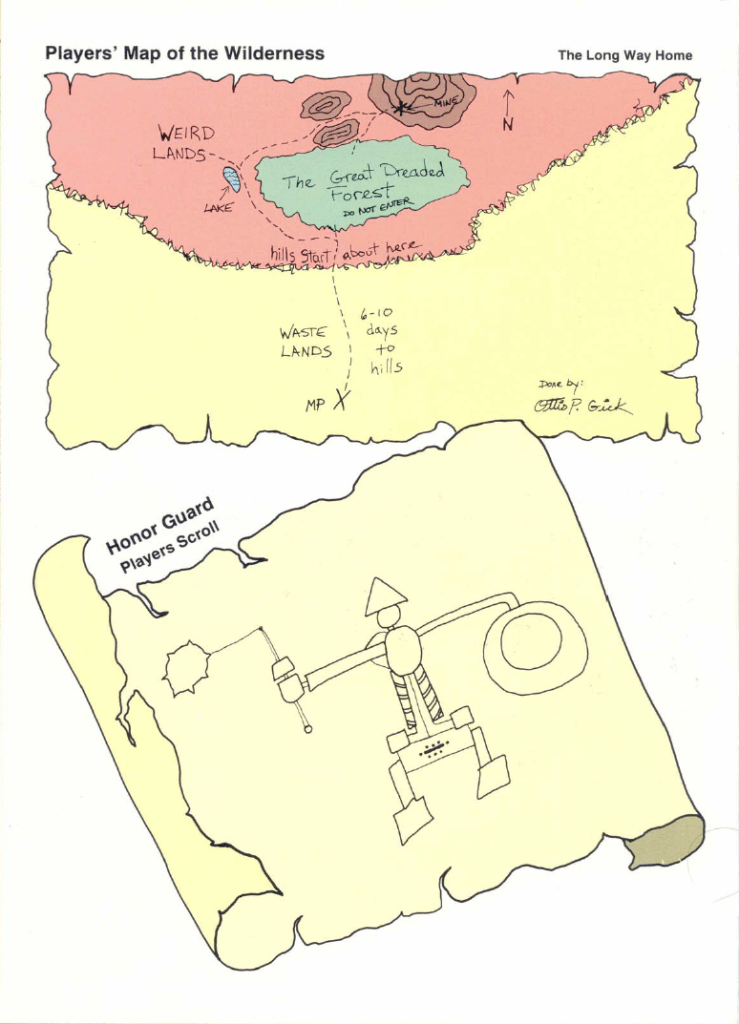 Players' Map of the Wilderness
The Long Way Home
MINE
N
WEIRD
LANDS
The Great Dreaded
Forest
DO NOT ENTER
LAKE
hills start about here
WASTE
LANDS
6-10
days
to
hills
MP X
Done by:
Ottis P. Gick
Honor Guard
Players Scroll